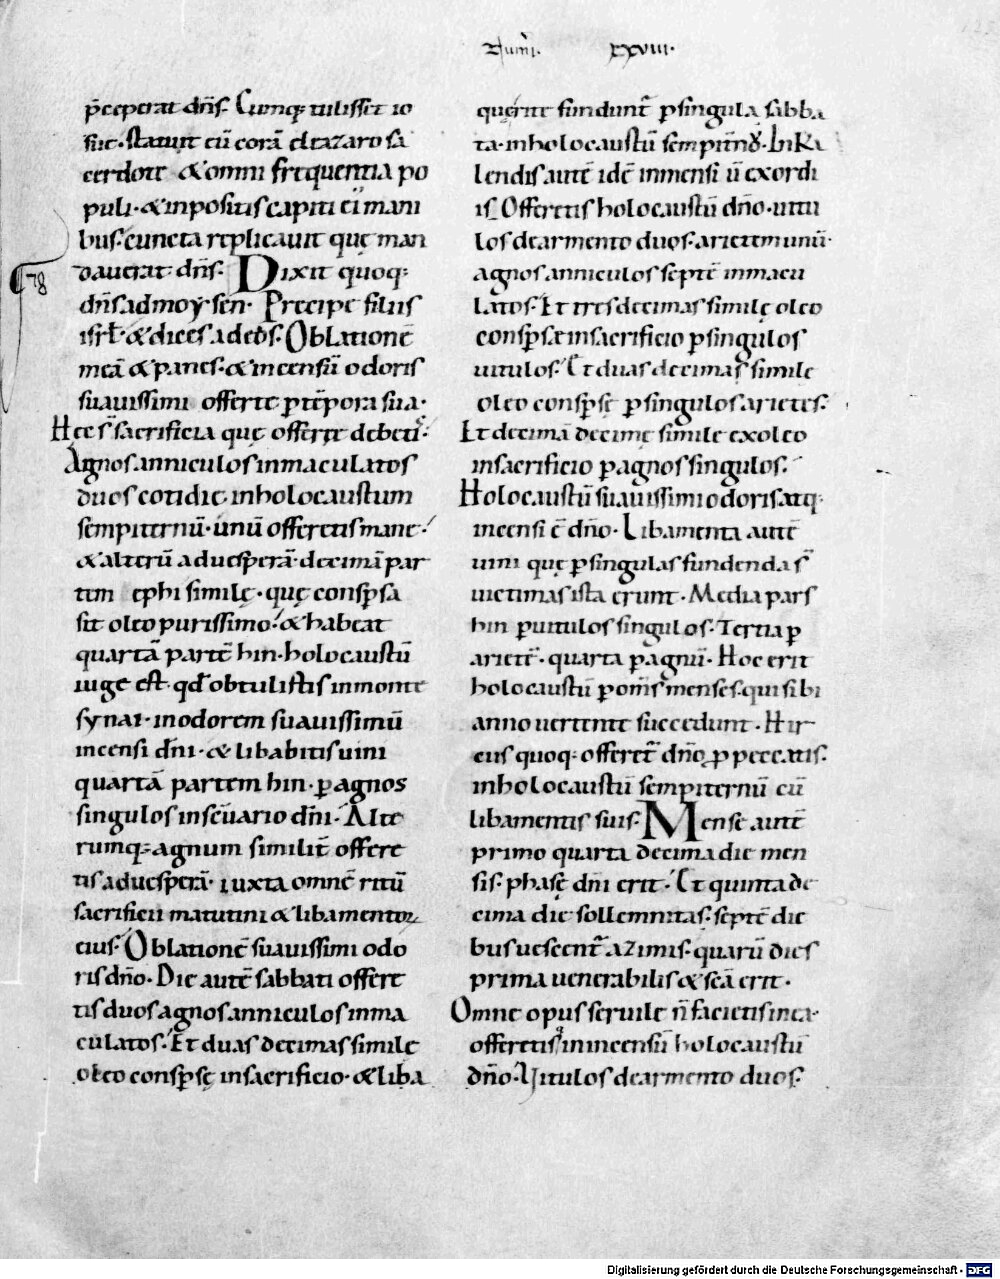 Numi. cxviii.
p̄ceperat dn̄s. Cumq; tulisset io
sue. statuit eū corā eleazaro sa
cerdote & omni frequentia po
puli. & inpositis capiti ei mani
bus. cuncta replicauit quę man
dauerat dn̄s. Dixit quoq;
dn̄s ad moysen. Precipe filiis
isrł. & dices ad eos. Oblationē
meā & panes. & incensū odoris
suauissimi offerte p tēpora sua.
Hec s̄ sacrificia quę offerre debetis.
Agnos anniculos inmaculatos
duos cotidie in holocaustum
sempiternū. unū offeretis mane.
& alterū ad uesperā. decimā par
tem ephi similę. quę conspsa
sit oleo purissimo. & habeat
quartā partē hin. holocaustū
iuge est. qd obtulistis in monte
synai. in odorem suauissimū
incensi dn̄i. & libabitis uini
quartā partem hin. p agnos
singulos in sc̄uario dn̄i. Alte
rumq; agnum similit̄ offere
tis ad uesperā. iuxta omnē ritū
sacrificii matutini & libamentorum
eius. Oblationē suauissimi odo
ris dn̄o. Die autē sabbati offere
tis duos agnos anniculos inma
culatos. Et duas decimas similę
oleo conspsę in sacrificio. & liba
querite fundunt̄ p singula sabba
ta. in holocaustū sempitn̄ū. In Ka
lendis autē idē in mensiū exordi
is. Offeretis holocaustū dn̄o. uitu
los de armento duos. arietem unū.
agnos anniculos septē inmacu
latos. Et tres decimas similę oleo
conspsæ in sacrificio p singulos
uitulos. Et duas decimas simile
oleo conspsę p singulos arietes.
Et decimā decimę simile ex oleo
in sacrificio p agnos singulos.
Holocaustū suauissimi odoris atq;
incensi ē dn̄o. Libamenta autē
uini quę p singulas fundenda s̄
uictimas ista erunt. Media pars
hin p uitulos singulos. Tertia p
arietē. quarta p agnū. Hoc erit
holocaustū p om̄s menses. qui sibi
anno uertente succedunt. Hir
cus quoq. offeret̄ dn̄o p peccatis.
in holocaustū sempiternū cū
libamentis suis. Mense autē
primo quarta decima die men
sis. phasę dn̄i erit. Et quinta de
cima die sollemnitas. septē die
bus uescent̄ azimis. quarū dies
prima uenerabilis & sc̄a erit.
Omne opus seruile n̄ facietis in ea.
offeretisq in incensū holocaustū
dn̄o. Vitulos de armento duos.
Digitalisierung gefördert durch die Deutsche Forschungsgemeinschaft - DFG